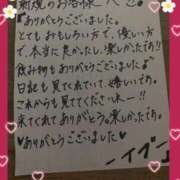 新規のお客様へ
ありがとうございました。
とても おもしろい方で、優しい方
で、本当に良かったし、楽しかったです!!
飲み物もありがとうございます。
日記も見てくれていて、嬉しいです。
これからも見てくださいネー!!
来てくれてありがとう。楽しかったです。
♥ありがとうございました♥
ーイブー